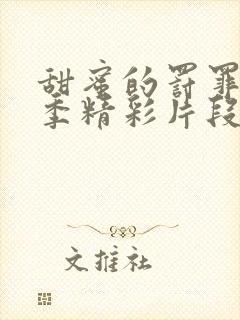 甜蜜的罚罪
季精彩片段
文推社